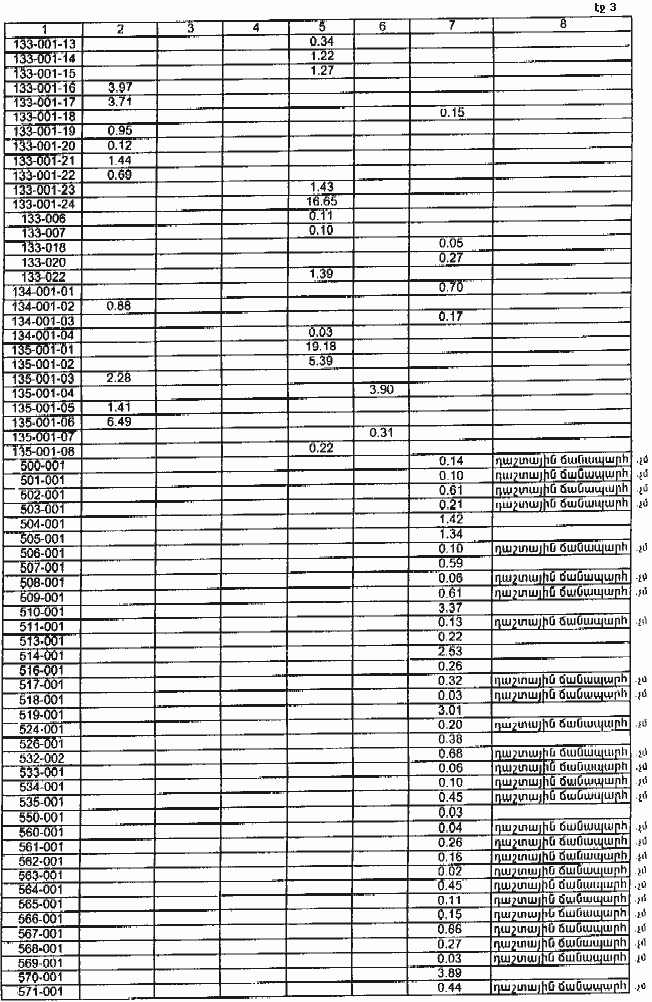 էջ 3
1 2 3 4 5 6 7 8
133-001-13 0.34
133-001-14 1.22
133-001-15 1.27
133-001-16 3.97
133-001-17 3.71
133-001-18 0.15
133-001-19 0.95
133-001-20 0.12
133-001-21 1.44
133-001-22 0.69
133-001-23 1.43
133-001-24 16.65
133-006 0.11
133-007 0.10
133-018 0.05
133-020 0.27
133-022 1.39
134-001-01 0.70
134-001-02 0.88
134-001-03 0.17
134-001-04 0.03
135-001-01 19.18
135-001-02 5.39
135-001-03 2.28
135-001-04 3.90
135-001-05 1.41
135-001-06 6.49
135-001-07 0.31
135-001-08 0.22
500-001 0.14 դաշտային ճանապարհ .չմ
501-001 0.10 դաշտային ճանապարհ .չմ
502-001 0.61 դաշտային ճանապարհ .չմ
503-001 0.21 դաշտային ճանապարհ .չմ
504-001 1.42
505-001 1.34
506-001 0.10 դաշտային ճանապարհ .չմ
507-001 0.59
508-001 0.06 դաշտային ճանապարհ .չմ
509-001 0.61 դաշտային ճանապարհ .չմ
510-001 3.37
511-001 0.13 դաշտային ճանապարհ .չմ
513-001 0.22
514-001 2.53
516-001 0.26
517-001 0.32 դաշտային ճանապարհ .չմ
518-001 0.03 դաշտային ճանապարհ .չմ
519-001 3.01
524-001 0.20 դաշտային ճանապարհ .չմ
526-001 0.38
532-002 0.68 դաշտային ճանապարհ .չմ
533-001 0.06 դաշտային ճանապարհ .չմ
534-001 0.10 դաշտային ճանապարհ .չմ
535-001 0.45 դաշտային ճանապարհ .չմ
550-001 0.03
560-001 0.04 դաշտային ճանապարհ .չմ
561-001 0.26 դաշտային ճանապարհ .չմ
562-001 0.16 դաշտային ճանապարհ .չմ
563-001 0.02 դաշտային ճանապարհ .չմ
564-001 0.45 դաշտային ճանապարհ .չմ
565-001 0.11 դաշտային ճանապարհ .չմ
566-001 0.15 դաշտային ճանապարհ .չմ
567-001 0.86 դաշտային ճանապարհ .չմ
568-001 0.27 դաշտային ճանապարհ .չմ
569-001 0.03 դաշտային ճանապարհ .չմ
570-001 3.89
571-001 0.44 դաշտային ճանապարհ .չմ